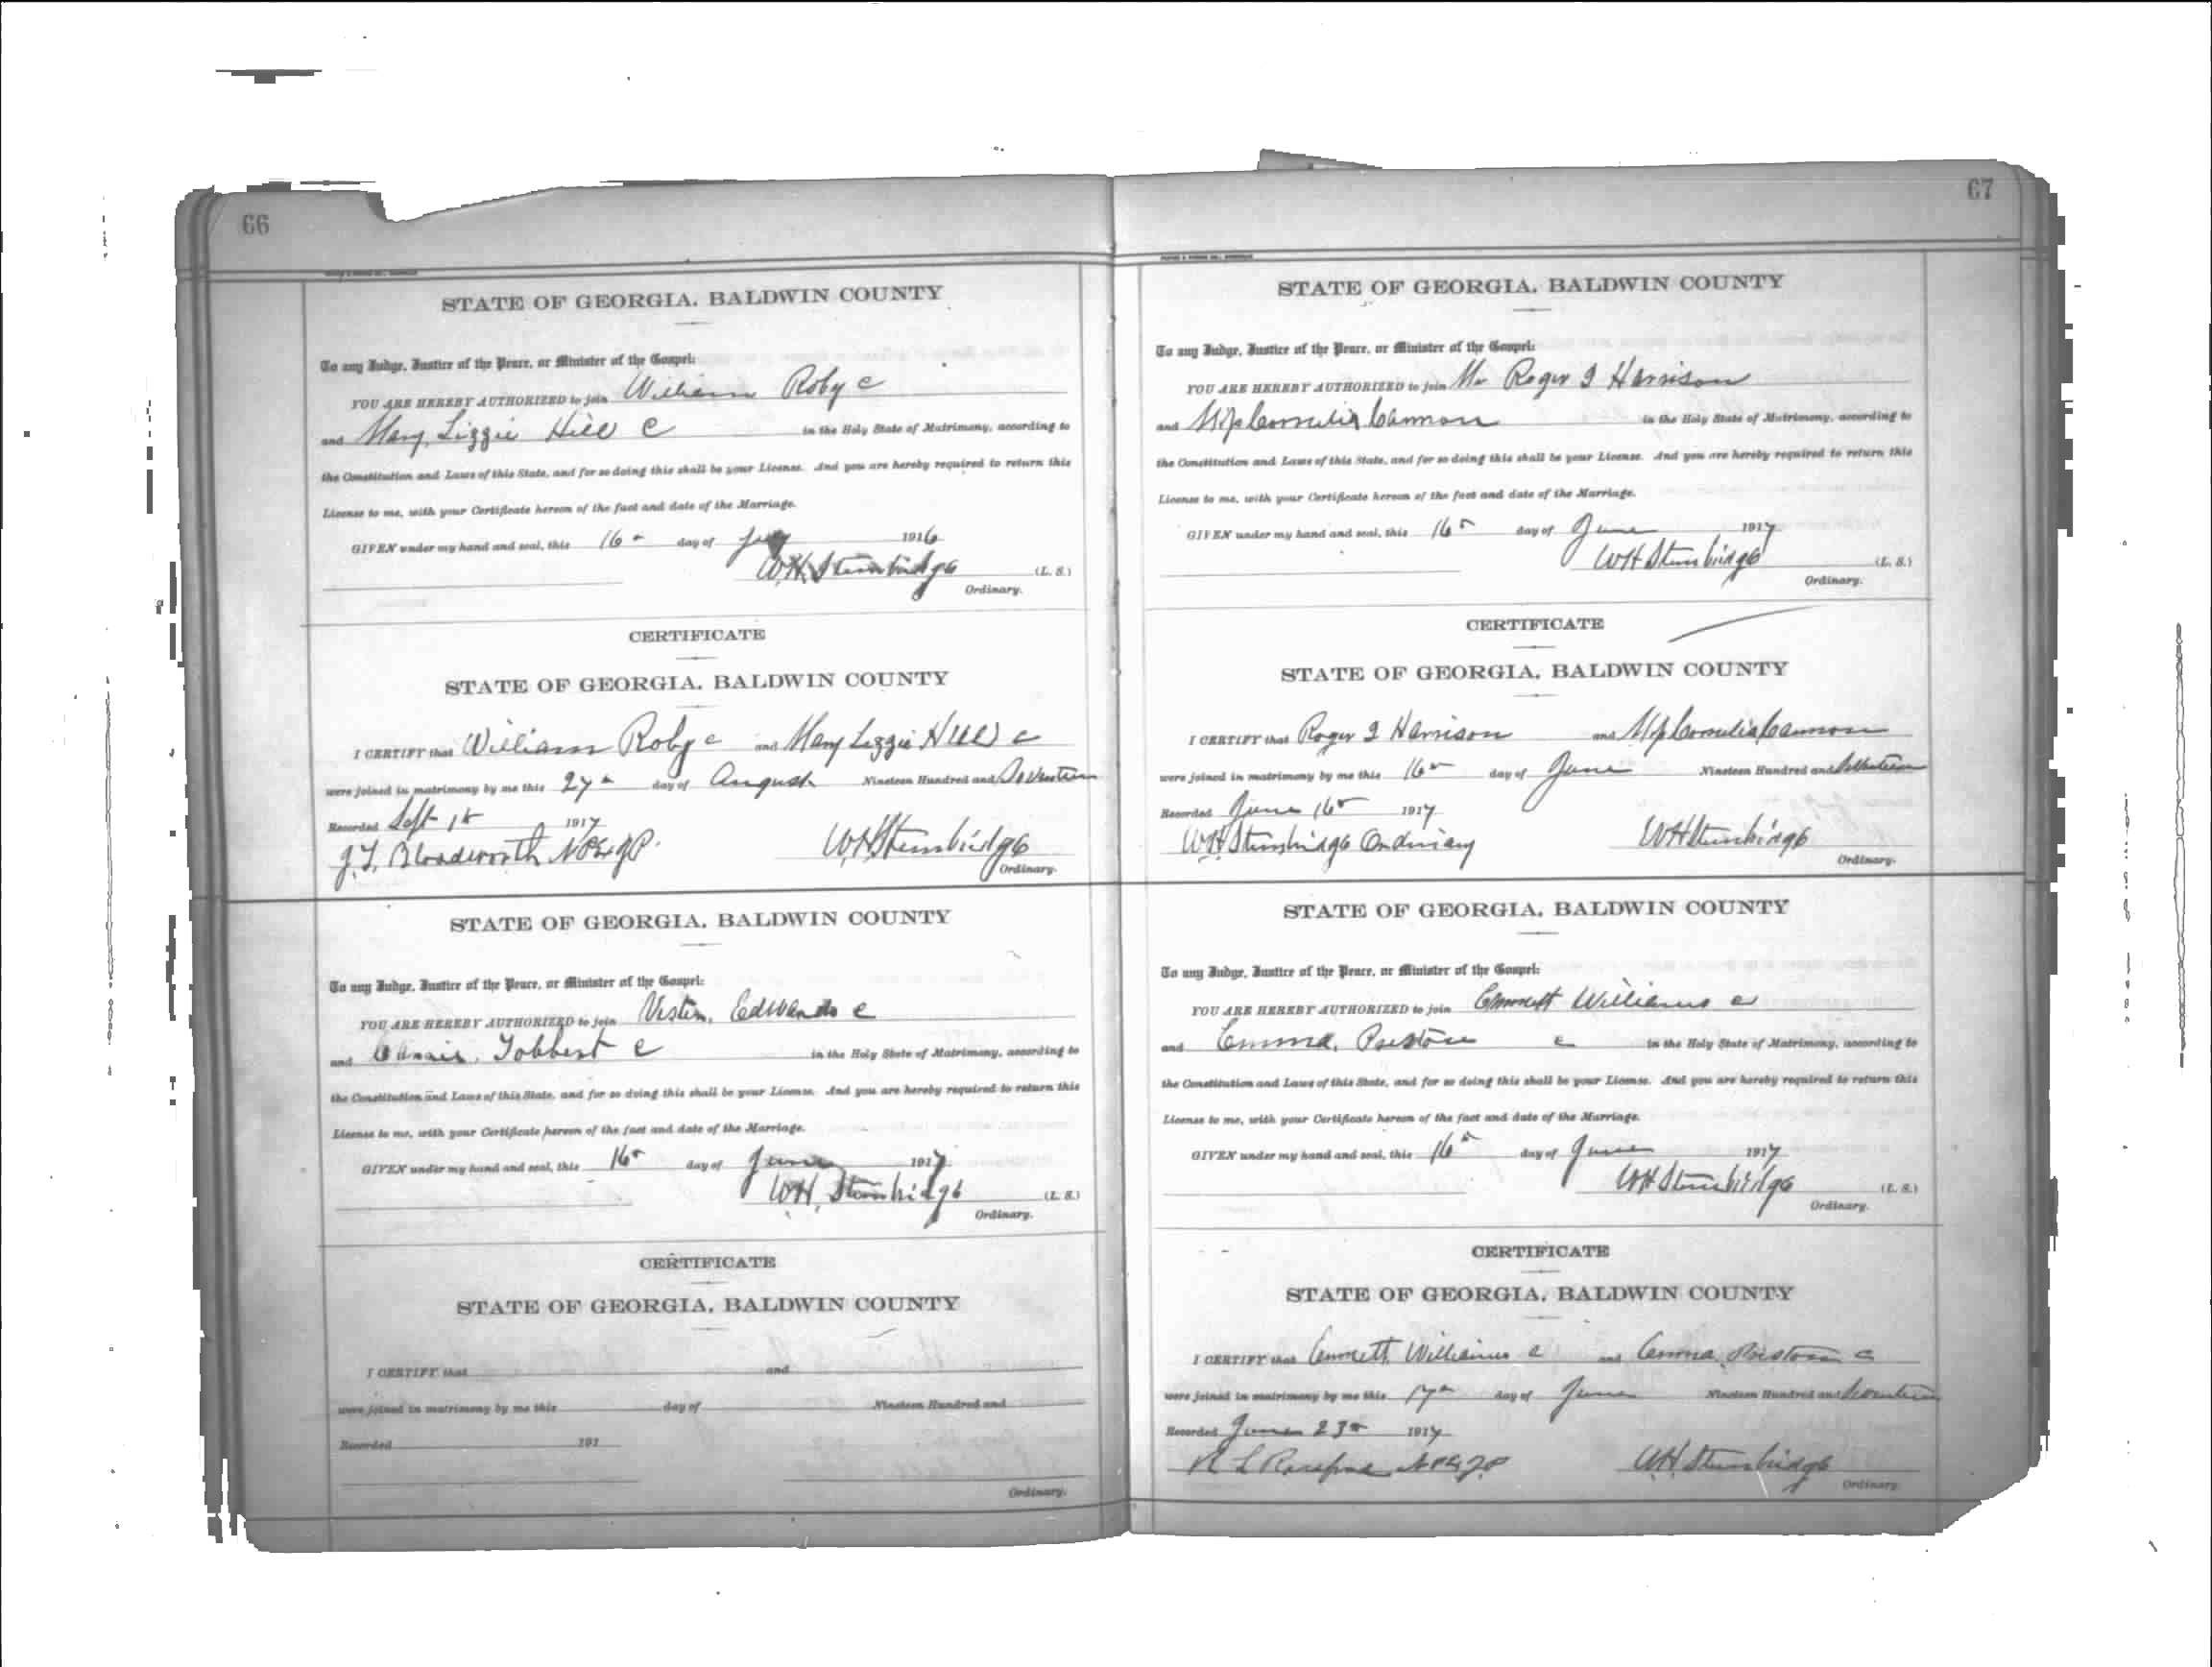 66
STATE OF GEORGIA, BALDWIN COUNTY
To any Judge, Justice of the Peace, or Minister of the Gospel:
YOU ARE HEREBY AUTHORIZED to join William Roby c
and Mary Lizzie Hill C in the Holy State of Matrimony, according to
the Constitution and Laws of this State, and for so doing this shall be your License. And you are hereby required to return this
License to me, with your Certificate hereon of the fact and date of the Marriage.
GIVEN under my hand and seal, this 16 day of 1916
W.H. Stembridge (L. S.)
Ordinary.
CERTIFICATE
STATE OF GEORGIA, BALDWIN COUNTY
I CERTIFY that William Roby c and Mary Lizzie Hill c
were joined in matrimony by me this 27 day of August Nineteen Hundred and Seventeen
Recorded Sept 1st 1917
J.T. Bloodworth W.H. Stembridge
Ordinary.
STATE OF GEORGIA, BALDWIN COUNTY
To any Judge, Justice of the Peace, or Minister of the Gospel:
YOU ARE HEREBY AUTHORIZED to join Edwards c
and c in the Holy State of Matrimony, according to
the Constitution and Laws of this State, and for so doing this shall be your License. And you are hereby required to return this
License to me, with your Certificate hereon of the fact and date of the Marriage.
GIVEN under my hand and seal, this 16 day of June 1917
W.H. Stembridge (L. S.)
Ordinary.
CERTIFICATE
STATE OF GEORGIA, BALDWIN COUNTY
I CERTIFY that and
were joined in matrimony by me this day of Nineteen Hundred and
Recorded 191
Ordinary.
67
STATE OF GEORGIA, BALDWIN COUNTY
To any Judge, Justice of the Peace, or Minister of the Gospel:
YOU ARE HEREBY AUTHORIZED to join Mr Roger I Harrison
and Cornelia Cannon in the Holy State of Matrimony, according to
the Constitution and Laws of this State, and for so doing this shall be your License. And you are hereby required to return this
License to me, with your Certificate hereon of the fact and date of the Marriage.
GIVEN under my hand and seal, this 16 day of June 1917
WH Stembridge (L. S.)
Ordinary.
CERTIFICATE
STATE OF GEORGIA, BALDWIN COUNTY
I CERTIFY that Roger I Harrison and Cornelia Cannon
were joined in matrimony by me this 16 day of June Nineteen Hundred and
Recorded June 16 1917
W.H. Stembridge Ordinary WH Stembridge
Ordinary.
STATE OF GEORGIA, BALDWIN COUNTY
To any Judge, Justice of the Peace, or Minister of the Gospel:
YOU ARE HEREBY AUTHORIZED to join Emmett Williams c
and Emma Preston c in the Holy State of Matrimony, according to
the Constitution and Laws of this State, and for so doing this shall be your License. And you are hereby required to return this
License to me, with your Certificate hereon of the fact and date of the Marriage.
GIVEN under my hand and seal, this 16 day of June 1917
WH Stembridge (L. S.)
Ordinary.
CERTIFICATE
STATE OF GEORGIA, BALDWIN COUNTY
I CERTIFY that Emmett Williams c and Emma Preston c
were joined in matrimony by me this 17 day of June Nineteen Hundred and
Recorded June 23 1917
R L W.H. Stembridge
Ordinary.